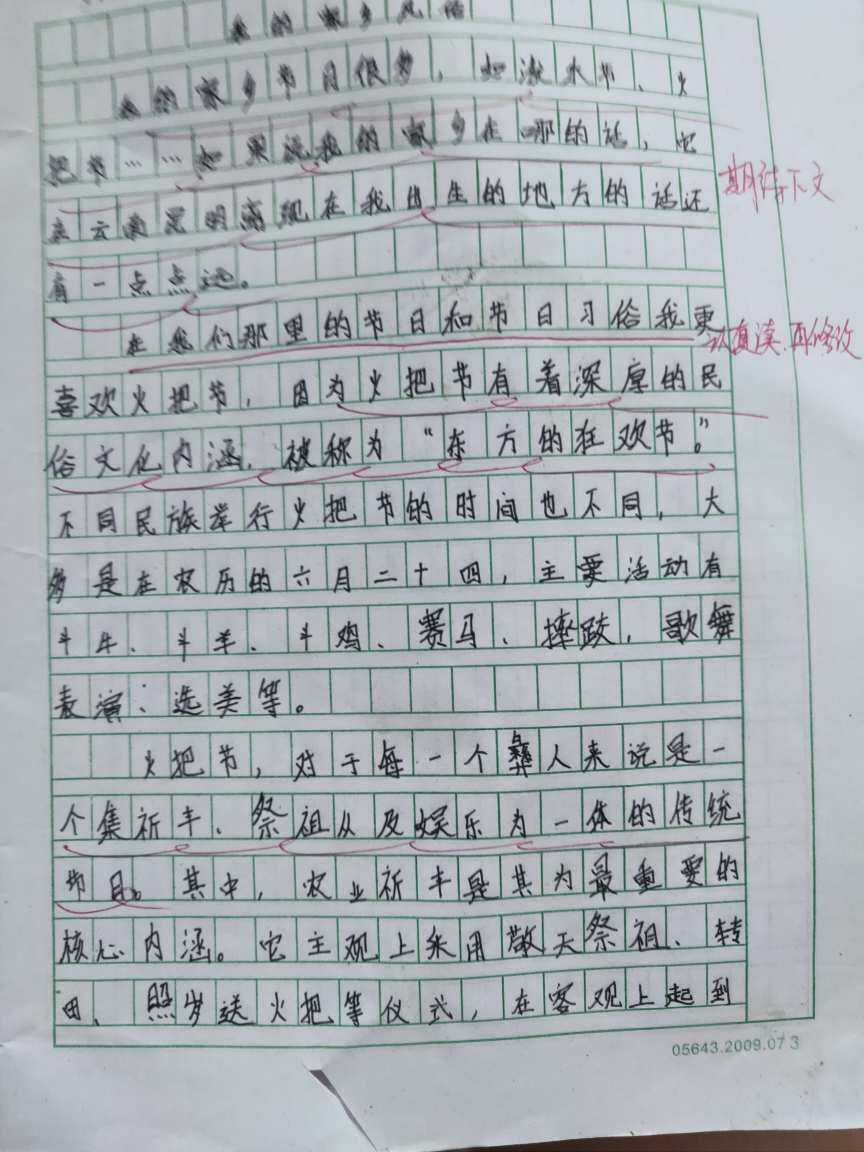 我的家乡风俗
我的家乡节日很多，如泼水节、火
把节……如果说我的家乡在哪的话，它
在云南昆明离现在我出生的地方的话还
有一点点远。
期待下文
在我们那里的节日和节日习俗我更
反复读，再修改
喜欢火把节，因为火把节有着深厚的民
俗文化内涵，被称为“东方的狂欢节”。
不同民族举行火把节的时间也不同，大
多是在农历的六月二十四，主要活动有
斗牛、斗羊、斗鸡、赛马、摔跤，歌舞
表演、选美等。
火把节，对于每一个彝人来说是一
个集祈丰、祭祖从及娱乐为一体的传统
节日。其中，农业祈丰是其为最重要的
核心内涵。它主观上采用敬天祭祖、转
田、照岁送火把等仪式，在客观上起到
05643.2009.07 3